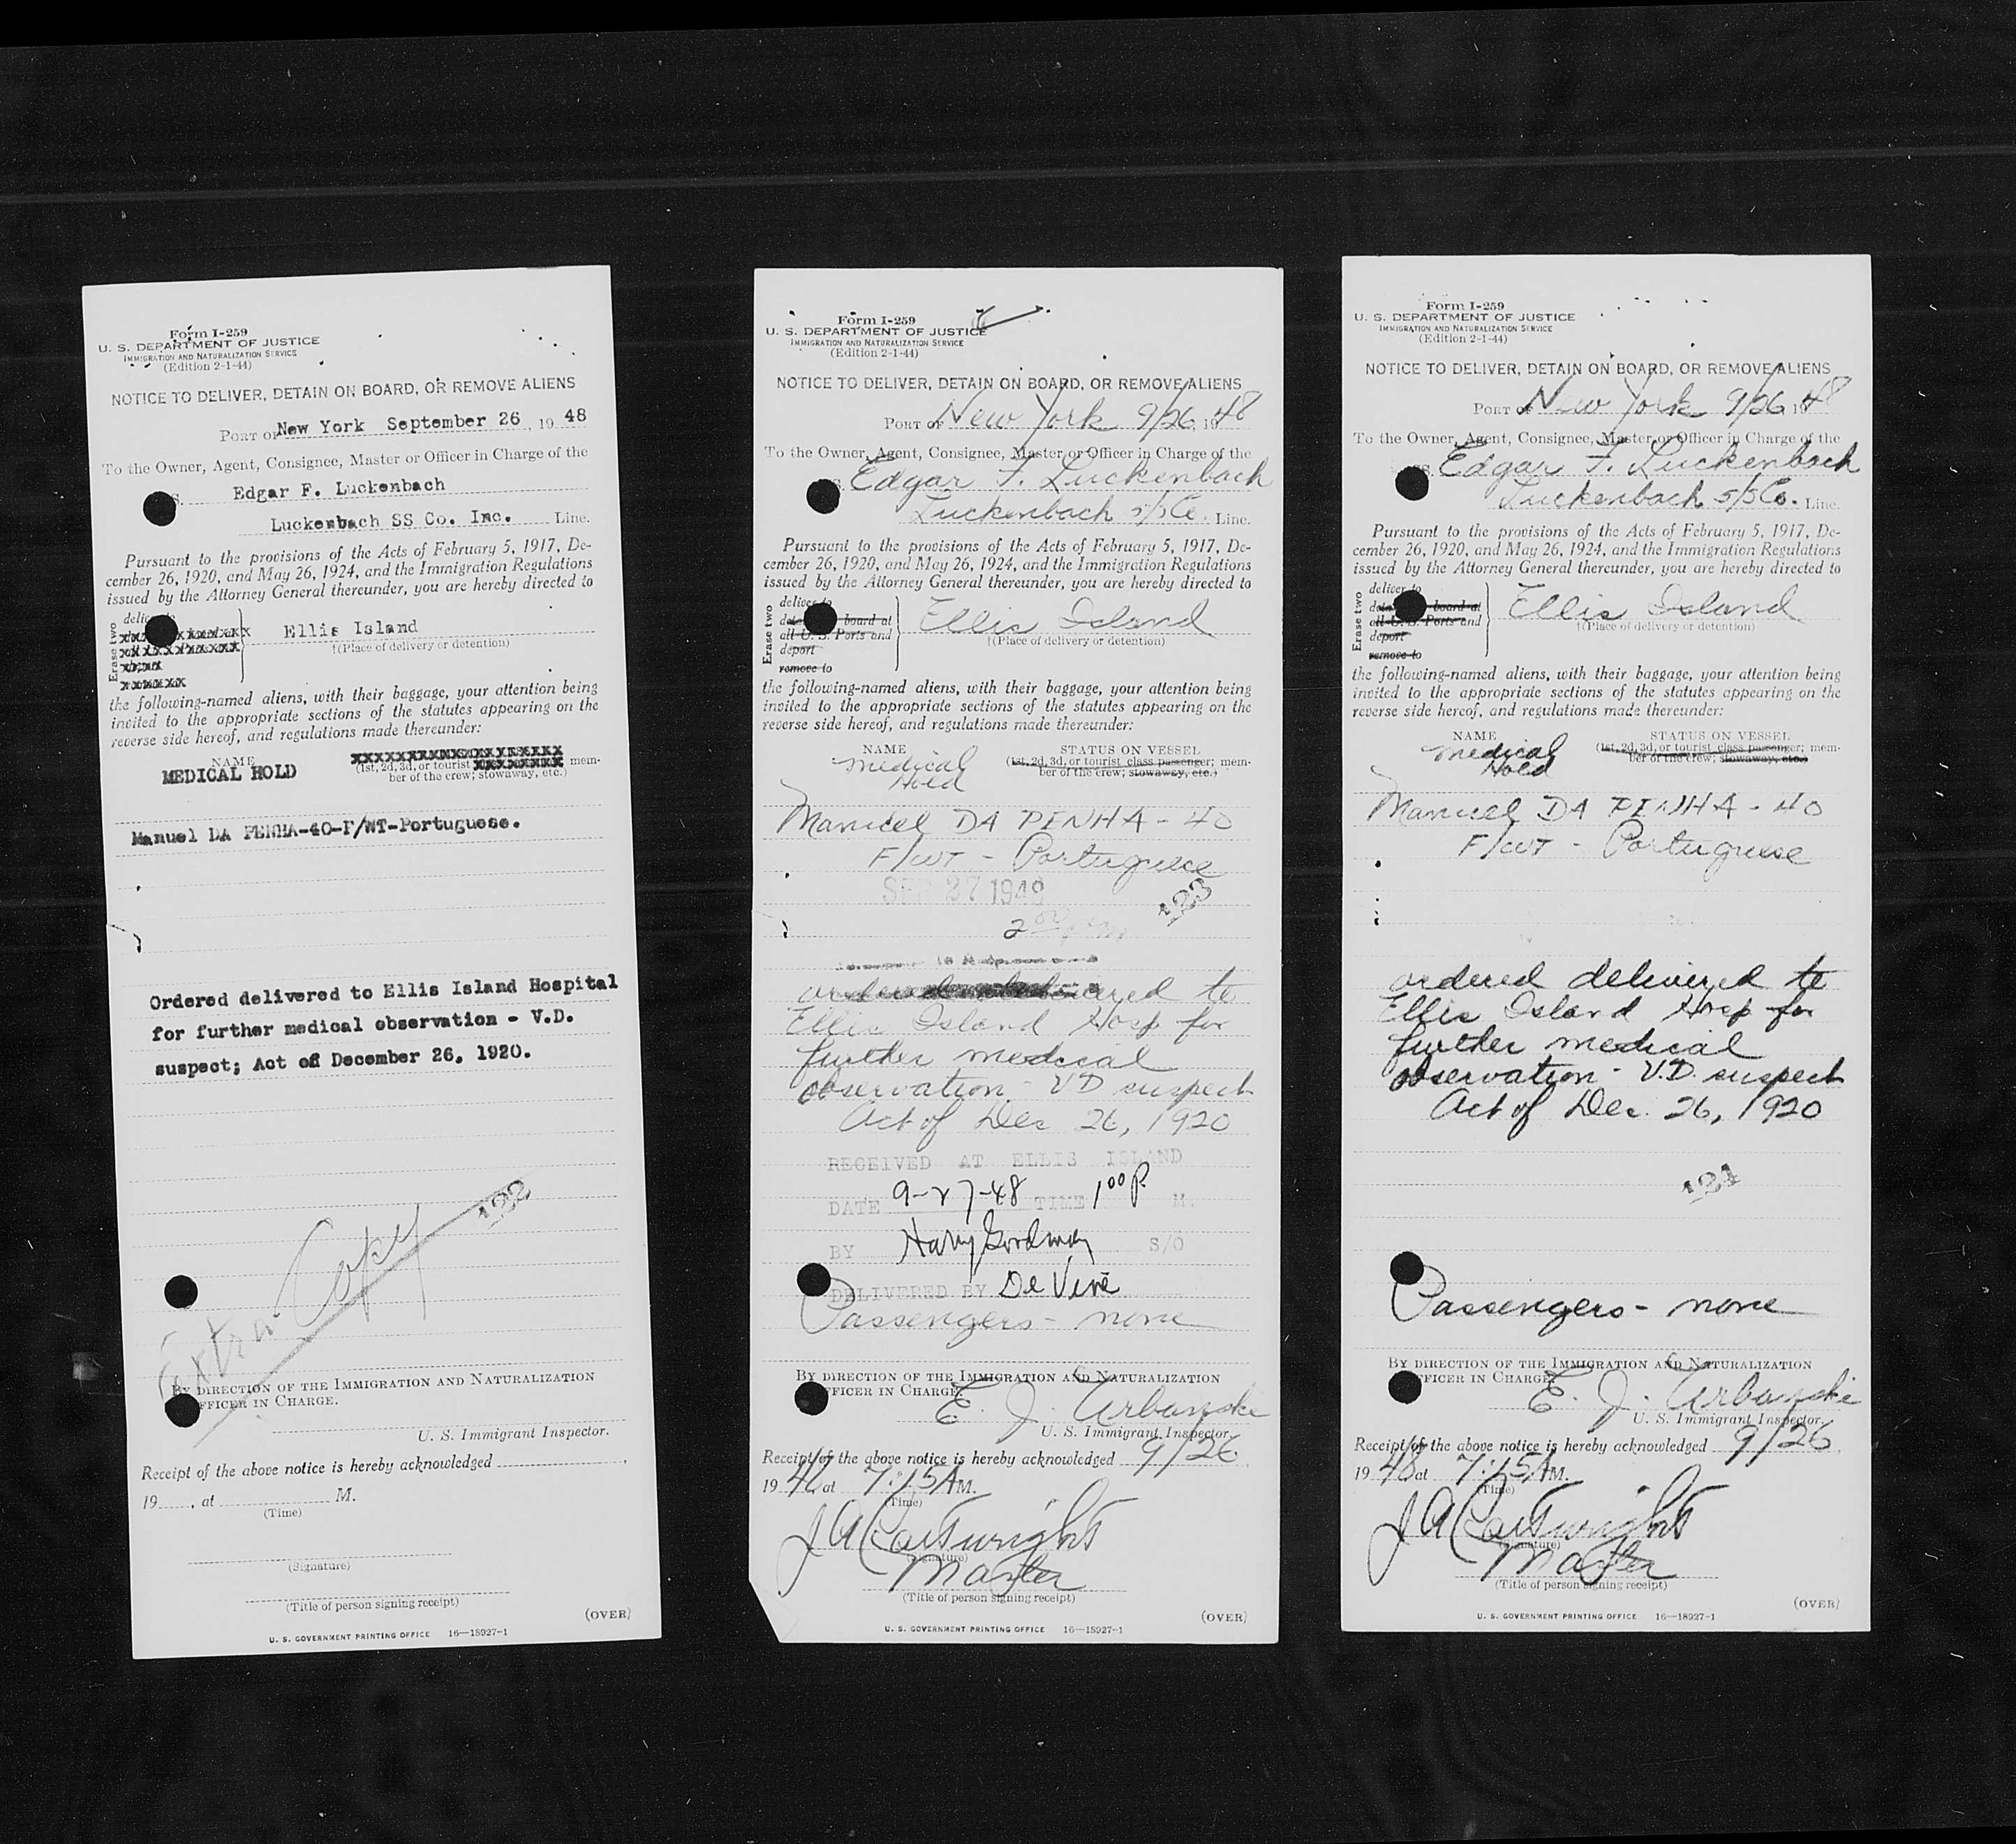 Form I-259
U. S. DEPARTMENT OF JUSTICE
IMMIGRATION AND NATURALIZATION SERVICE
(Edition 2-1-44)
NOTICE TO DELIVER, DETAIN ON BOARD, OR REMOVE ALIENS
PORT OF New York September 26, 19 48
To the Owner, Agent, Consignee, Master or Officer in Charge of the
S. Edgar F. Luckenbach
Luckenbach SS Co. Inc. Line.
Pursuant to the provisions of the Acts of February 5, 1917, De-
cember 26, 1920, and May 26, 1924, and the Immigration Regulations
issued by the Attorney General thereunder, you are hereby directed to
Erase two
Ellis Island
†(Place of delivery or detention)
the following-named aliens, with their baggage, your attention being
invited to the appropriate sections of the statutes appearing on the
reverse side hereof, and regulations made thereunder:
NAME
MEDICAL HOLD
(1st, 2d, 3d, or tourist mem-
ber of the crew; stowaway, etc.)
Manuel DA PENHA-40-F/WT-Portuguese.
Ordered delivered to Ellis Island Hospital
for further medical observation - V.D.
suspect; Act of December 26, 1920.
122
Extra Copy
BY DIRECTION OF THE IMMIGRATION AND NATURALIZATION
OFFICER IN CHARGE.
U. S. Immigrant Inspector.
Receipt of the above notice is hereby acknowledged
19 , at M.
(Time)
(Signature)
(Title of person signing receipt)
(OVER)
U. S. GOVERNMENT PRINTING OFFICE 16—18927-1
Form I-259
U. S. DEPARTMENT OF JUSTICE
IMMIGRATION AND NATURALIZATION SERVICE
(Edition 2-1-44)
NOTICE TO DELIVER, DETAIN ON BOARD, OR REMOVE ALIENS
PORT OF New York 9/26, 1948
To the Owner, Agent, Consignee, Master or Officer in Charge of the
S. Edgar F. Luckenbach
Luckenbach S/S Co. Line.
Pursuant to the provisions of the Acts of February 5, 1917, De-
cember 26, 1920, and May 26, 1924, and the Immigration Regulations
issued by the Attorney General thereunder, you are hereby directed to
Erase two
deliver to
board at
all U. S. Ports and
deport
remove to
Ellis Island
†(Place of delivery or detention)
the following-named aliens, with their baggage, your attention being
invited to the appropriate sections of the statutes appearing on the
reverse side hereof, and regulations made thereunder:
NAME STATUS ON VESSEL
Medical Hold
(1st, 2d, 3d, or tourist class passenger; mem-
ber of the crew; stowaway, etc.)
Manuel DA PENHA - 40
F/WT - Portuguese
SEP 27 1948
123
2 00 PM
ordered delivered to
Ellis Island Hosp for
further medical
observation - VD suspect
Act of Dec 26, 1920
RECEIVED AT ELLIS ISLAND
DATE 9-27-48 TIME 1 00 P. M.
BY Harry S/O
DELIVERED BY De Vine
Passengers - none
BY DIRECTION OF THE IMMIGRATION AND NATURALIZATION
OFFICER IN CHARGE.
E. J. Urbanski
U. S. Immigrant Inspector.
Receipt of the above notice is hereby acknowledged 9/26,
1948 at 7:15 AM.
(Time)
J A Cartwright
(Signature)
Master
(Title of person signing receipt)
(OVER)
U. S. GOVERNMENT PRINTING OFFICE 16—18927-1
Form I-259
U. S. DEPARTMENT OF JUSTICE
IMMIGRATION AND NATURALIZATION SERVICE
(Edition 2-1-44)
NOTICE TO DELIVER, DETAIN ON BOARD, OR REMOVE ALIENS
PORT OF New York 9/26 1948
To the Owner, Agent, Consignee, Master or Officer in Charge of the
SS. Edgar F. Luckenbach
Luckenbach S/S Co. Line.
Pursuant to the provisions of the Acts of February 5, 1917, De-
cember 26, 1920, and May 26, 1924, and the Immigration Regulations
issued by the Attorney General thereunder, you are hereby directed to
Erase two
deliver to
board at
all U. S. Ports and
deport
remove to
Ellis Island
†(Place of delivery or detention)
the following-named aliens, with their baggage, your attention being
invited to the appropriate sections of the statutes appearing on the
reverse side hereof, and regulations made thereunder:
NAME STATUS ON VESSEL
Medical Hold
(1st, 2d, 3d, or tourist class passenger; mem-
ber of the crew; stowaway, etc.)
Manuel DA PENHA - 40
F/WT - Portuguese
ordered delivered to
Ellis Island Hosp for
further medical
observation - V.D. suspect
Act of Dec. 26, 1920
124
Passengers - none
BY DIRECTION OF THE IMMIGRATION AND NATURALIZATION
OFFICER IN CHARGE.
E. J. Urbanski
U. S. Immigrant Inspector.
Receipt of the above notice is hereby acknowledged 9/26,
1948 at 7:15 AM.
(Time)
J A Cartwright
(Signature)
Master
(Title of person signing receipt)
(OVER)
U. S. GOVERNMENT PRINTING OFFICE 16—18927-1